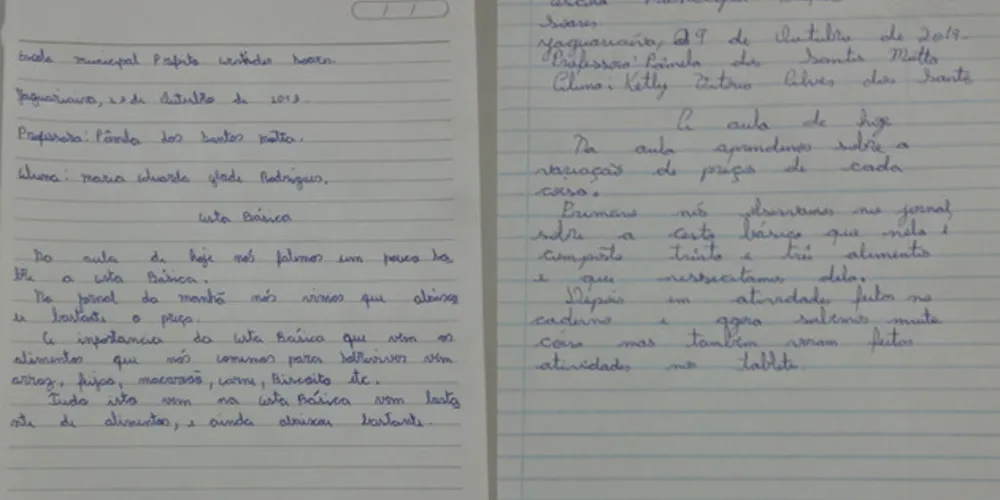 Escola municipal Prefeito Soares.
Jaguariaíva, 29 de Outubro de 2019.
Professora: Pâmela dos Santos Motta.
Aluna: Maria Eduarda Rodrigues.
Cesta Básica
Na aula de hoje nós falamos um pouco so
bre a cesta Básica.
No jornal da manhã nós vimos que abaixo
u bastante o preço.
A inportancia da cesta Básica que vem os
alimentos que nós comemos para sobreviver vem
arroz, feijão, macarrão, carne, Biscoito etc.
Tudo isto vem na cesta Básica vem basta
nte de alimentos, e ainda abaixou bastante.
Soares
Jaguariaíva, 29 de Outubro de 2019.
Professora: Pâmela dos Santos Motta
Aluna: Ketly Alves dos Santo
A aula de hoje
Na aula aprendemos sobre a
variação de preço de cada
coisa.
Primeiro nós observamos no jornal,
sobre a cesta básica que nela é
composto trinta e três alimentos
e que nessecitamos dela.
Depois em atividades feitas no
caderno e agora sabemos muita
coisa mas também veram feitas
atividades no tablete.